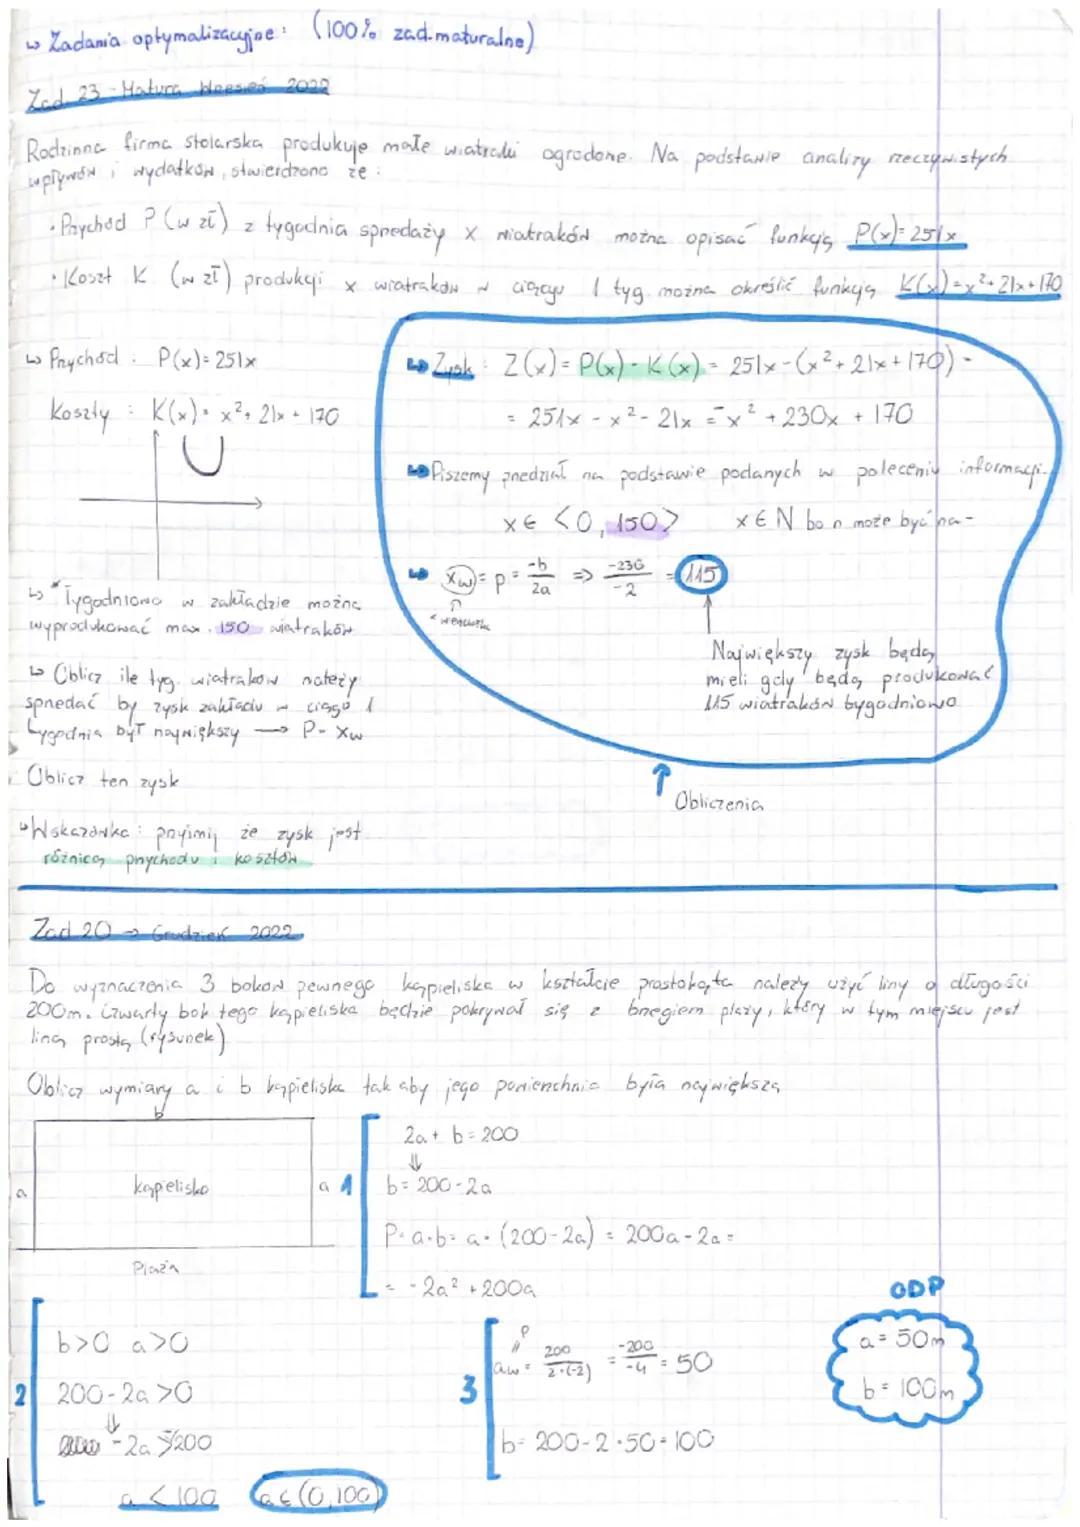 ↳ Zadania optymalizacyjne: (100% zad. maturalne)
Zad 23 - Matura Wresień 2022
Rodzinna firma stolarska produkuje małe wiatraki ogrodone. Na podstawie analizy rzeczywistych
wpływów i wydatków, stwierdzono że:
• Przychód P (w zł) z tygodnia spredaży x wiatraków można opisać funkcją P(x)=251x
• Koszt K (w zł) produkcji x wiatraków w ciągu 1 tyg. można określić funkcją K(x)=x²+21x+170
↳ Przychód: P(x)=251x
Koszty: K(x)=x²+21x+170
↳ Tygodniowo w zakładzie można
wyprodukować max. 150 wiatraków
↳ Oblicz ile tyg. wiatraków należy
spredać by zysk zakładu w ciągu 1
tygodnia był największy → P = Xw
Oblicz ten zysk
↳ Wskazówka: przyjmij że zysk jest
różnicą przychodu i kosztów
↳ Zysk: Z(x) = P(x) - K(x) = 251x - (x² + 21x + 170) =
= 251x - x² - 21x = -x² + 230x + 170
↳ Piszemy przedział na podstawie podanych w poleceniu informacji.
x ∈ <0, 150> x ∈ N bo n może być na-
↳ Xw = p = -b/2a => -230/-2 = 115
Największy zysk będą
mieli gdy będą produkować
115 wiatraków tygodniowo
Obliczenia
Zad 20 → Grudzień 2022
Do wyznaczenia 3 boków pewnego kąpieliska w kształcie prostokąta należy użyć liny o długości
200m. Czwarty bok tego kąpieliska będzie pokrywał się z brzegiem plaży, który w tym miejscu jest
linią prostą (rysunek)
Oblicz wymiary a i b kąpieliska tak aby jego powierzchnia była największa
b
a kąpielisko a
Plaża
1
2a + b = 200
⇓
b = 200 - 2a
P = a·b = a·(200-2a) = 200a - 2a =
= -2a² + 200a
2
b>0 a>0
200-2a>0
⇓
-2a > -200
a < 100 a ∈ (0,100)
3
p
aw = 200/2·(-2) = -200/-4 = 50
b = 200 - 2·50 = 100
ODP
a = 50m
b = 100m